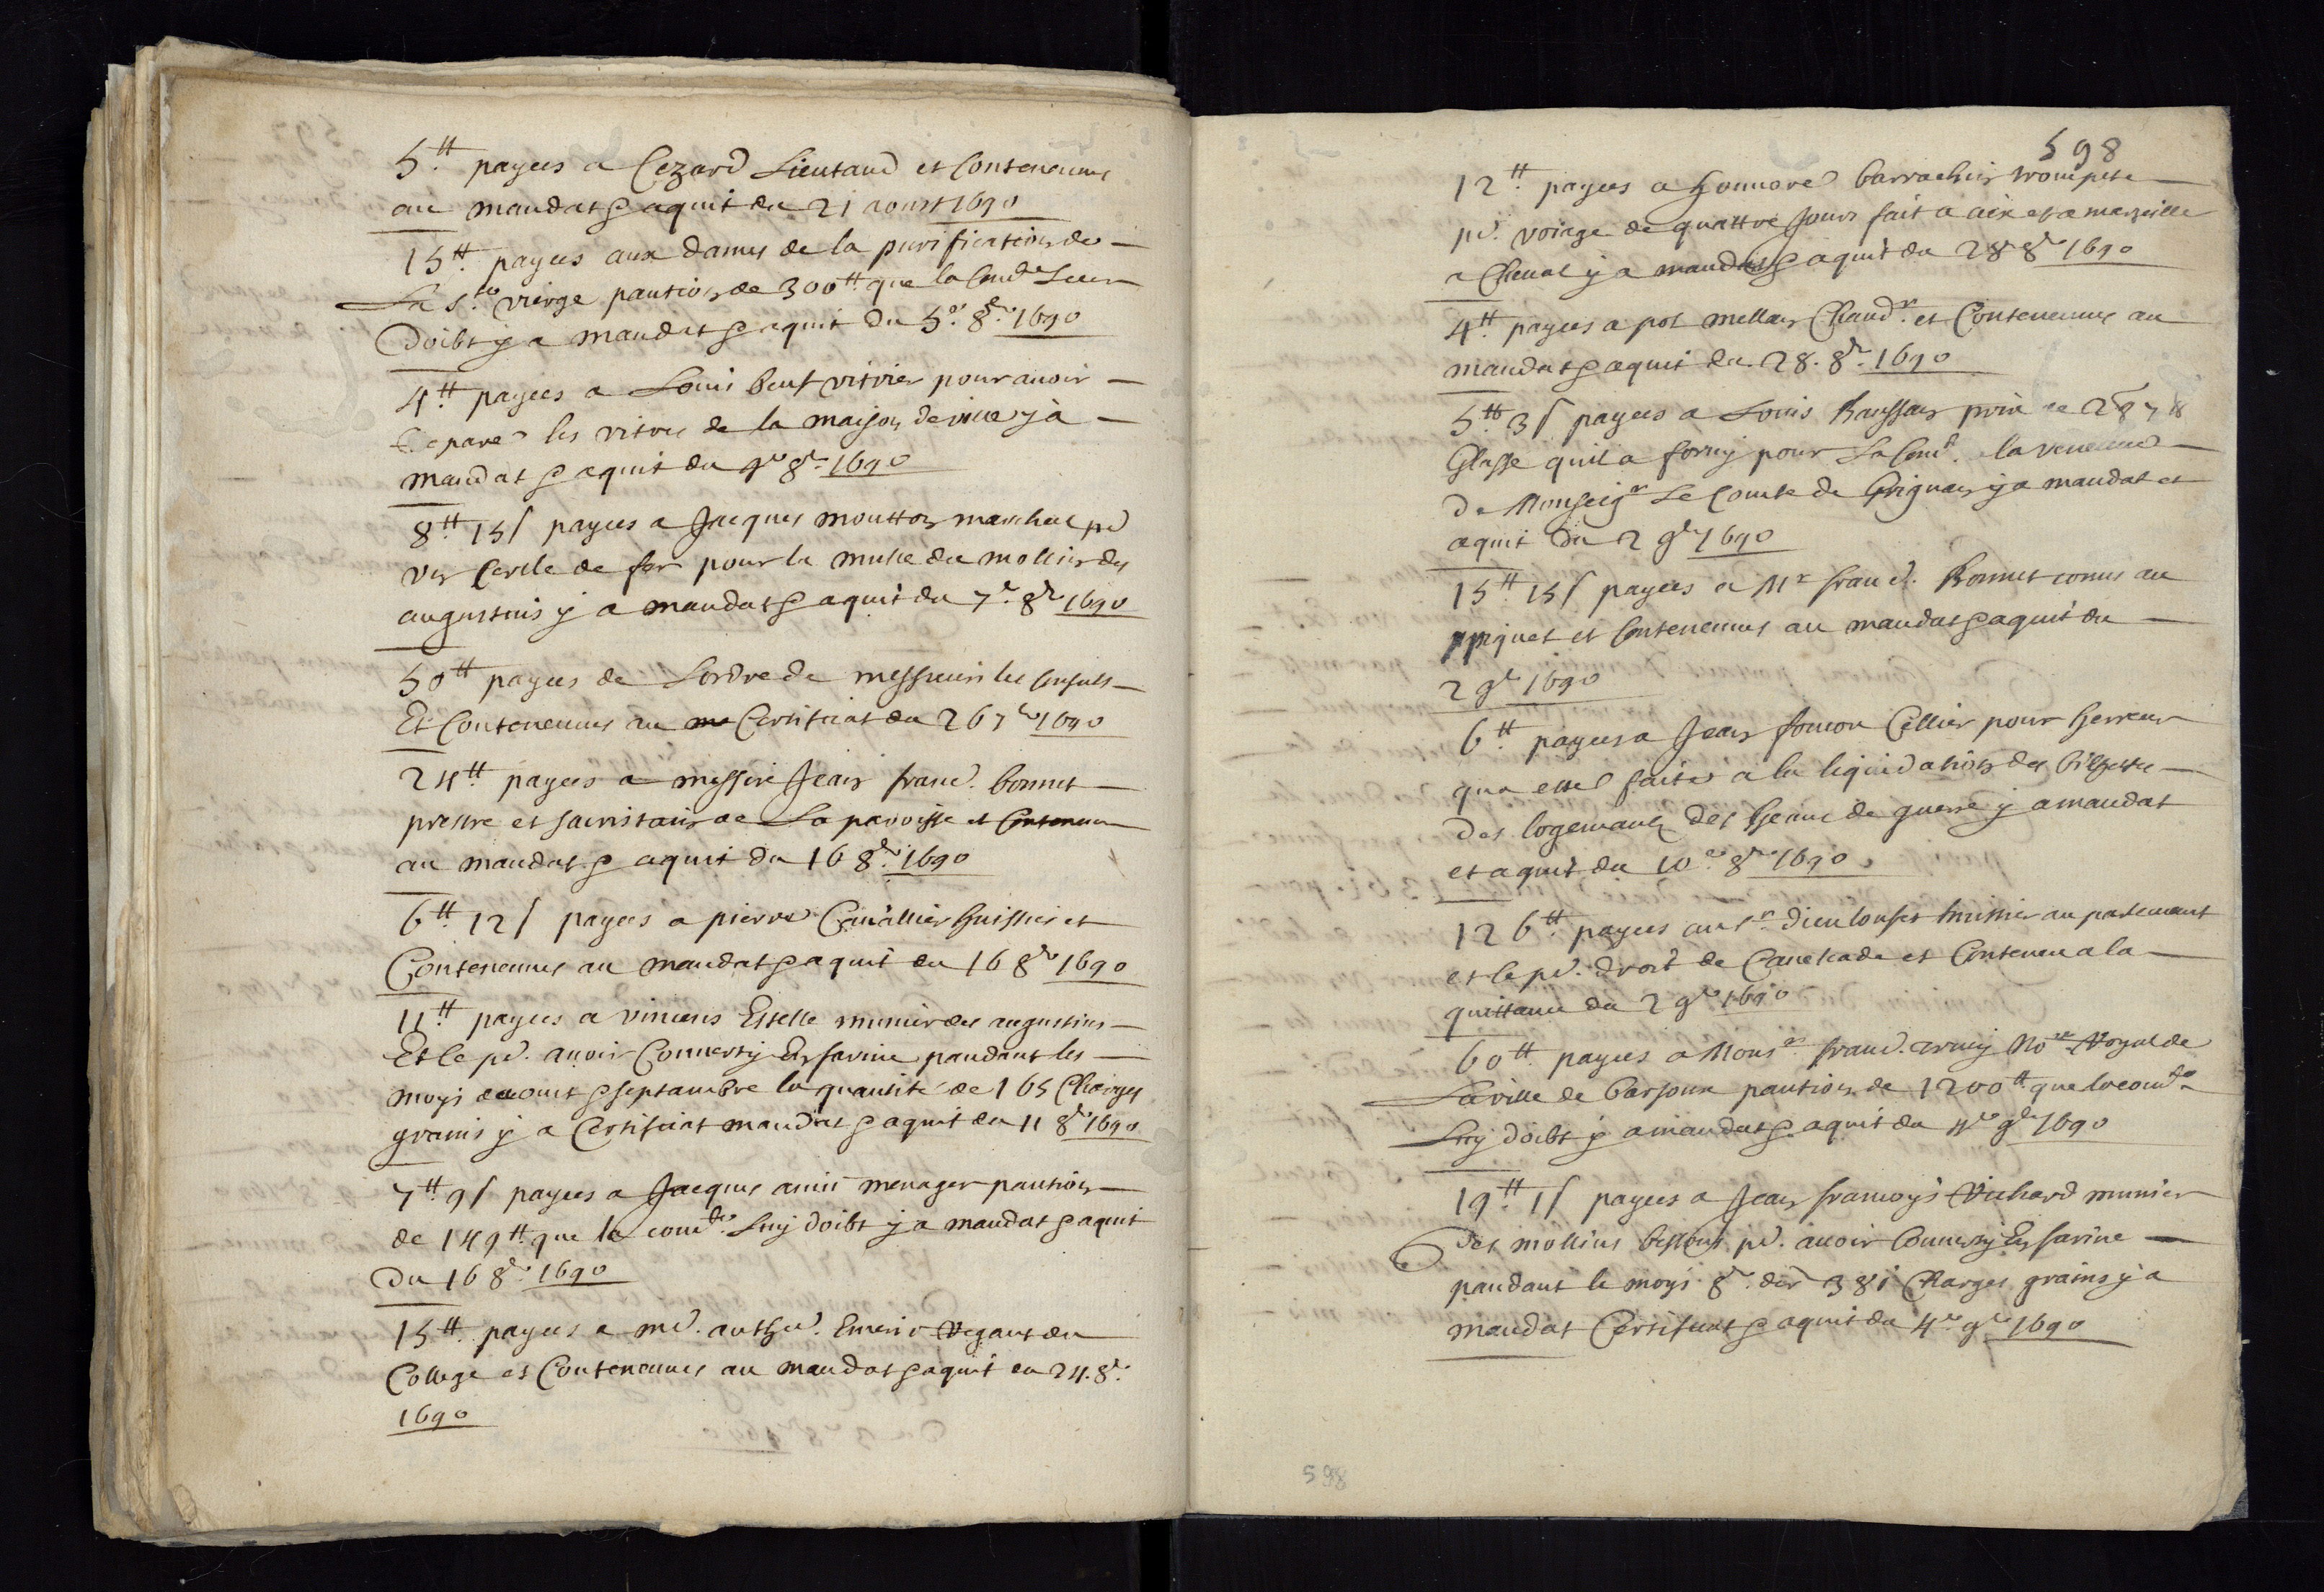 5.tt payees a Cezard Lieutaud et Contenenues
au mandat & aquit du 21 aoust 1690
15.tt payees aux dames de la purification de
La s.te vierge pantion de 300tt que la Com.de Leur
doibt y a mandat & aquit du 5.e 8.re 1690
4.tt payees a Louis beuf vitrier pour avoir
Repare les vitres de la maison de ville y a
mandat & aquit du 9e 8.re 1690
8.tt 15 s payees a Jacques moutton mareschal pr
un Cercle de fer pour la mulle du mollin des
augustins y a mandat & aquit du 7.e 8re 1690
50tt payees de Lordre de messieurs les Consuls
Et Contenenues au Certificat du 26 7re 1690
24tt payees a messire Jean franc. bonnet
prestre et sacristain de La parroisse et Contenenues
au mandat & aquit du 16 8.re 1690
6.tt 12 s payees a pierre Cavallier huissier et
Contenenues au mandat & aquit du 16 8re 1690
11.tt payees a vincens Estelle munier des augustins
Et le pr. avoir Converty En farine pandant les
moys daoust & septambre la quantité de 165 Charges
grains y a Certificat mandat & aquit du 11 8re 1690
7tt 9 s payees a Jacques amic menager pantion
de 149tt que la com.de Luy doibt y a mandat & aquit
du 16 8.re 1690
15.tt payees a mr. anthoe. Emeric Regant du
College et Contenenues au mandat & aquit du 24. 8.re
1690
598
12tt payees a honnore barrachin trompete
pr. voiage de quattre Jours fait a aix et a marseille
a Cheval y a mandat & aquit du 28 8re 1690
4tt payees a pol mellan Chaudr. et Contenenues au
mandat & aquit du 28. 8re 1690
5.tt 3 s payees a Louis Raussan prix de
Glasse quil a forny pour La Com.té la venue
de Monseigr Le Comte de Grignan y a mandat et
aquit du 2 9re 1690
15tt 15 s payees a Mr franc. Bonnet comis au
piquet et Contenenues au mandat & aquit du
2 9re 1690
6.tt payees a Jean foucou Cellier pour herreur
qua esté faite a la liquidation des billettes
des logemants des Gens de guerre y a mandat
et aquit du 10.e 8re 1690
126.tt payees au sr. dieulouset huissier au parlemant
et le pr. droit de Cavalcade et Contenenu a la
quittance du 2 9re 1690
60tt payees a Monsr. franc. arnuy Nore Royal de
La ville de barjoux pantion de 1200tt que la com.de
Luy doibt y a mandat & aquit du 4e 9re 1690
19tt 1 s payees a Jean francoys Richard munier
des mollins bessons pr. avoir Converty En farine
pandant le moys 8.re der 381 Charges grains y a
mandat Certificat & aquit du 4e 9re 1690
598